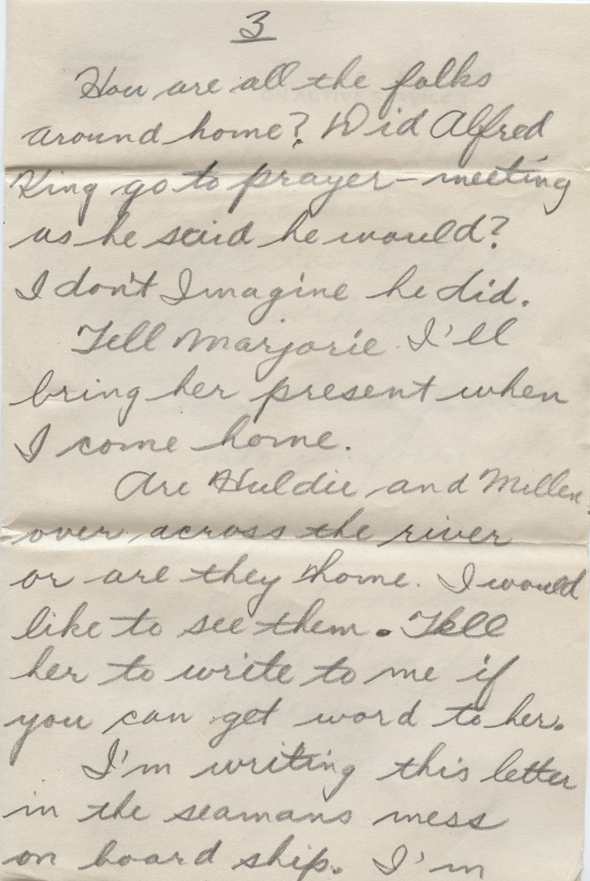 3
How are all the folks
around home? Did Alfred
King go to prayer-meeting
as he said he would?
I don't Imagine he did.
Tell Marjorie I'll
bring her present when
I come home.
Are Huldie and Millen
over across the river
or are they home. I would
like to see them. Tell
her to write to me if
you can get word to her.
I'm writing this letter
in the seamans mess
on board ship. I'm